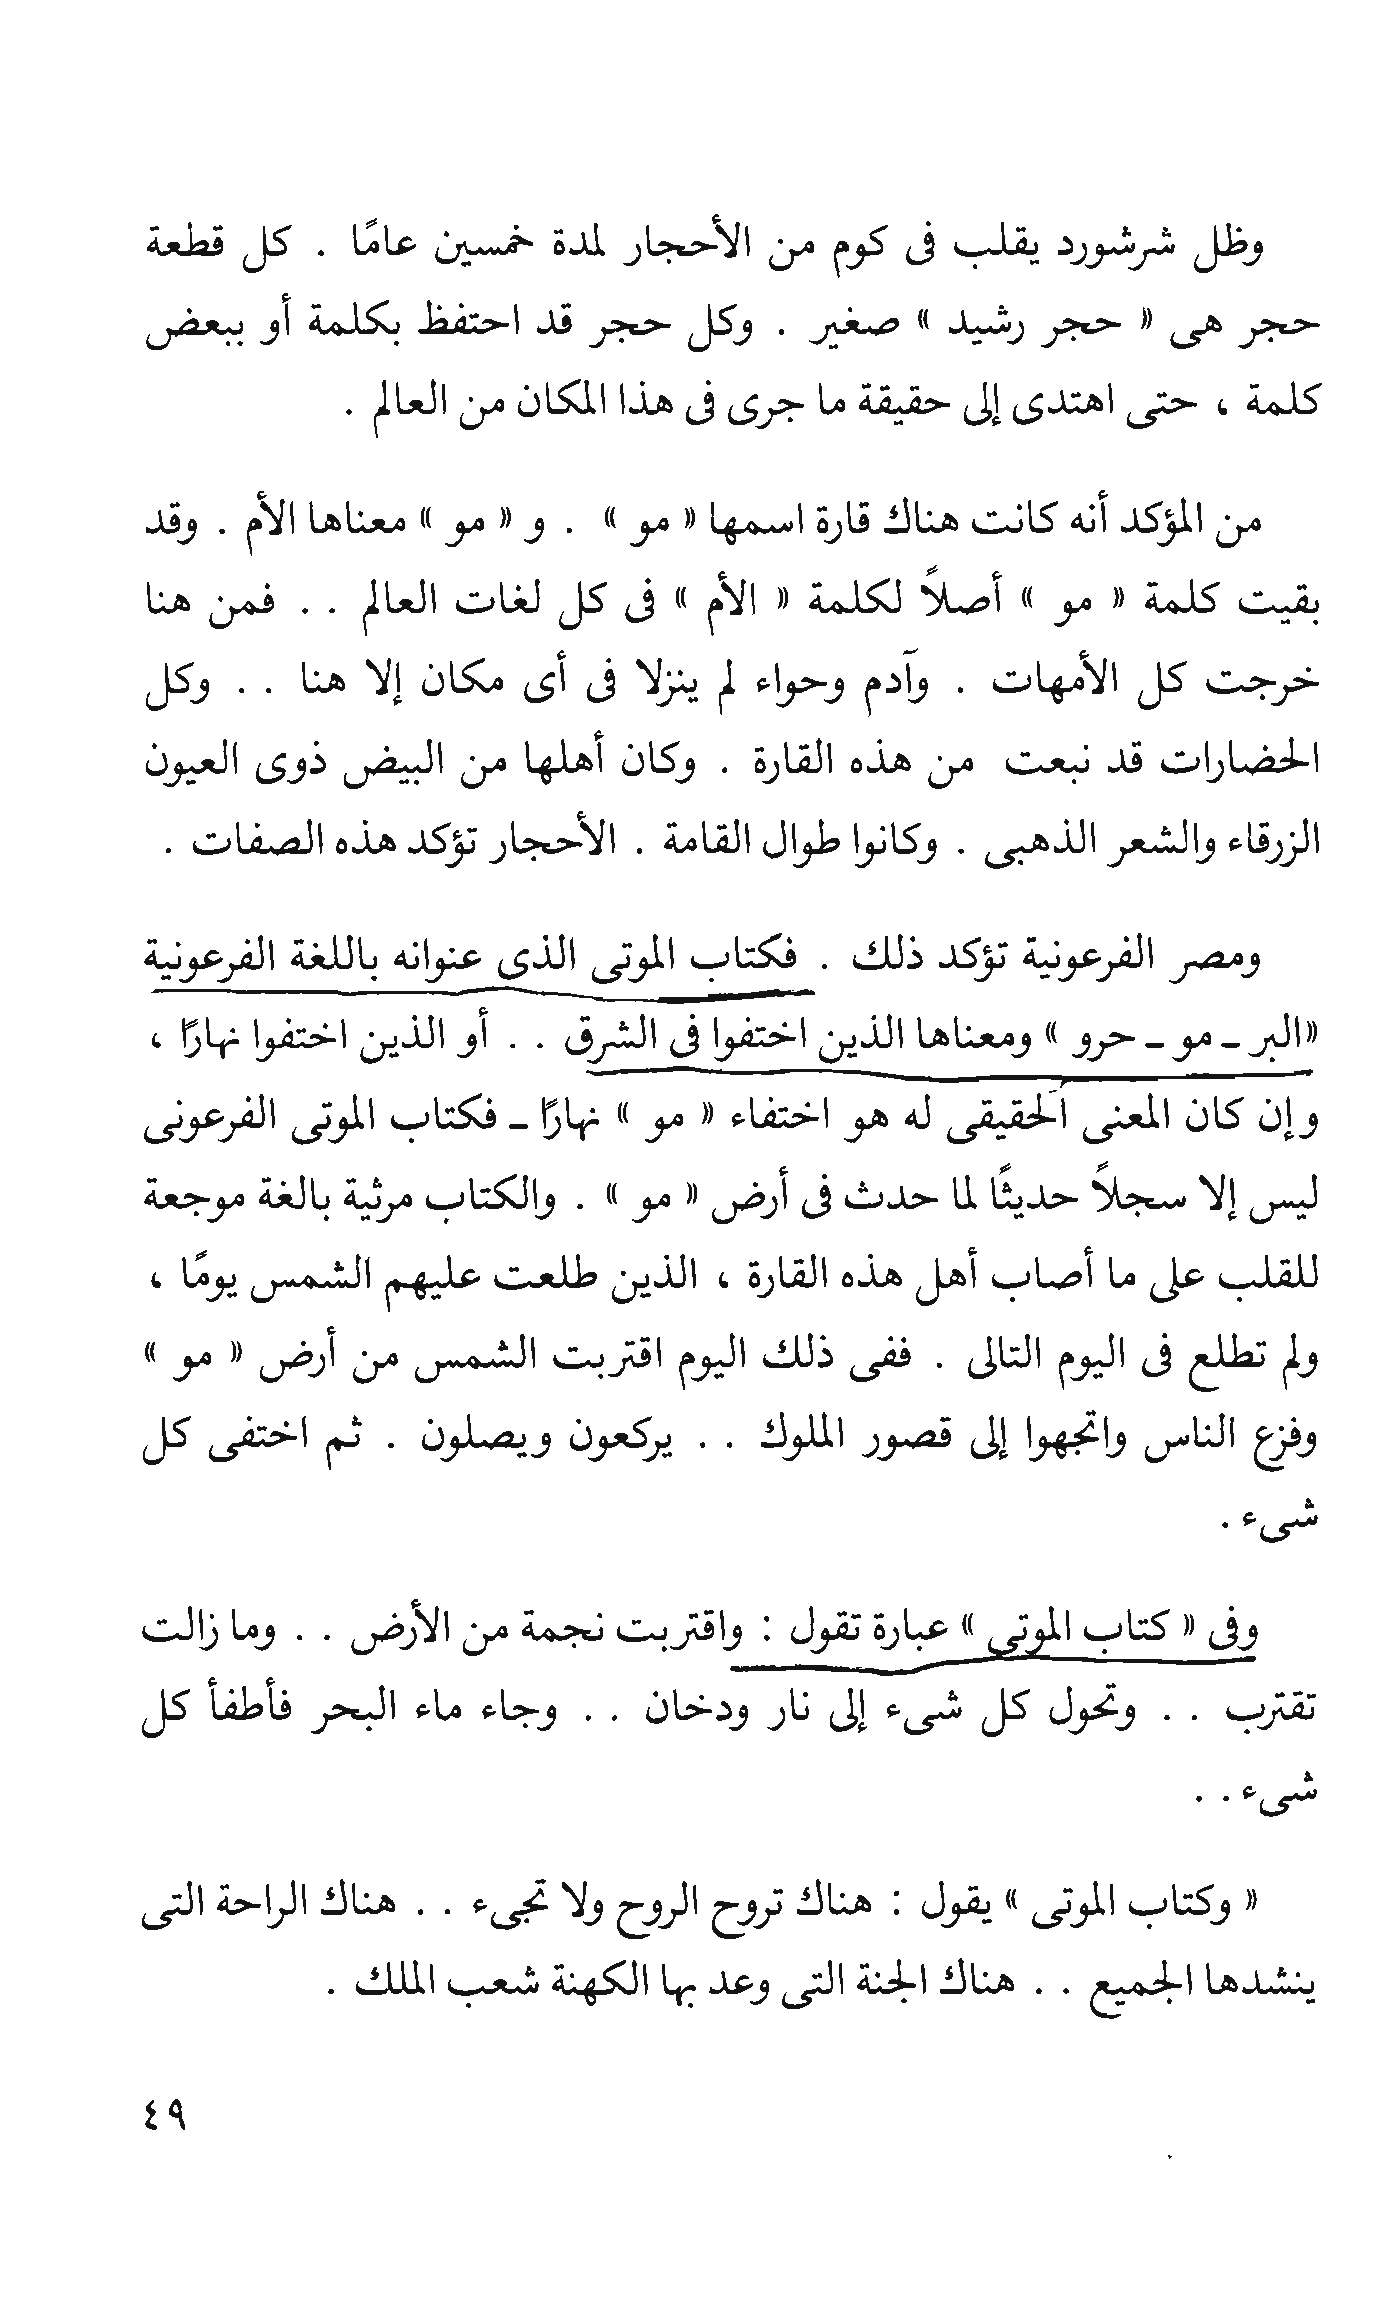 وظل شرشورد يقلب فى كوم من الأحجار لمدة خمسين عامًا . كل قطعة
حجر هى « حجر رشيد » صغير . وكل حجر قد احتفظ بكلمة أو ببعض
كلمة ، حتى اهتدى إلى حقيقة ما جرى فى هذا المكان من العالم .
من المؤكد أنه كانت هناك قارة اسمها « مو » . و « مو » معناها الأم . وقد
بقيت كلمة « مو » أصلاً لكلمة « الأم » فى كل لغات العالم . . فمن هنا
خرجت كل الأمهات . وآدم وحواء لم ينزلا فى أى مكان إلا هنا . . وكل
الحضارات قد نبعت من هذه القارة . وكان أهلها من البيض ذوى العيون
الزرقاء والشعر الذهبى . وكانوا طوال القامة . الأحجار تؤكد هذه الصفات .
ومصر الفرعونية تؤكد ذلك . فكتاب الموتى الذى عنوانه باللغة الفرعونية
«البر ــ مو ــ حرو » ومعناها الذين اختفوا فى الشرق . . أو الذين اختفوا نهارًا ،
وإن كان المعنى الحقيقى له هو اختفاء « مو » نهارًا ــ فكتاب الموتى الفرعونى
ليس إلا سجلاً حديثًا لما حدث فى أرض « مو » . والكتاب مرثية بالغة موجعة
للقلب على ما أصاب أهل هذه القارة ، الذين طلعت عليهم الشمس يومًا ،
ولم تطلع فى اليوم التالى . ففى ذلك اليوم اقتربت الشمس من أرض « مو »
وفزع الناس واتجهوا إلى قصور الملوك . . يركعون ويصلون . ثم اختفى كل
شىء .
وفى « كتاب الموتى » عبارة تقول : واقتربت نجمة من الأرض . . وما زالت
تقترب . . وتحول كل شىء إلى نار ودخان . . وجاء ماء البحر فأطفأ كل
شىء . .
« وكتاب الموتى » يقول : هناك تروح الروح ولا تجىء . . هناك الراحة التى
ينشدها الجميع . . هناك الجنة التى وعد بها الكهنة شعب الملك .
٤٩